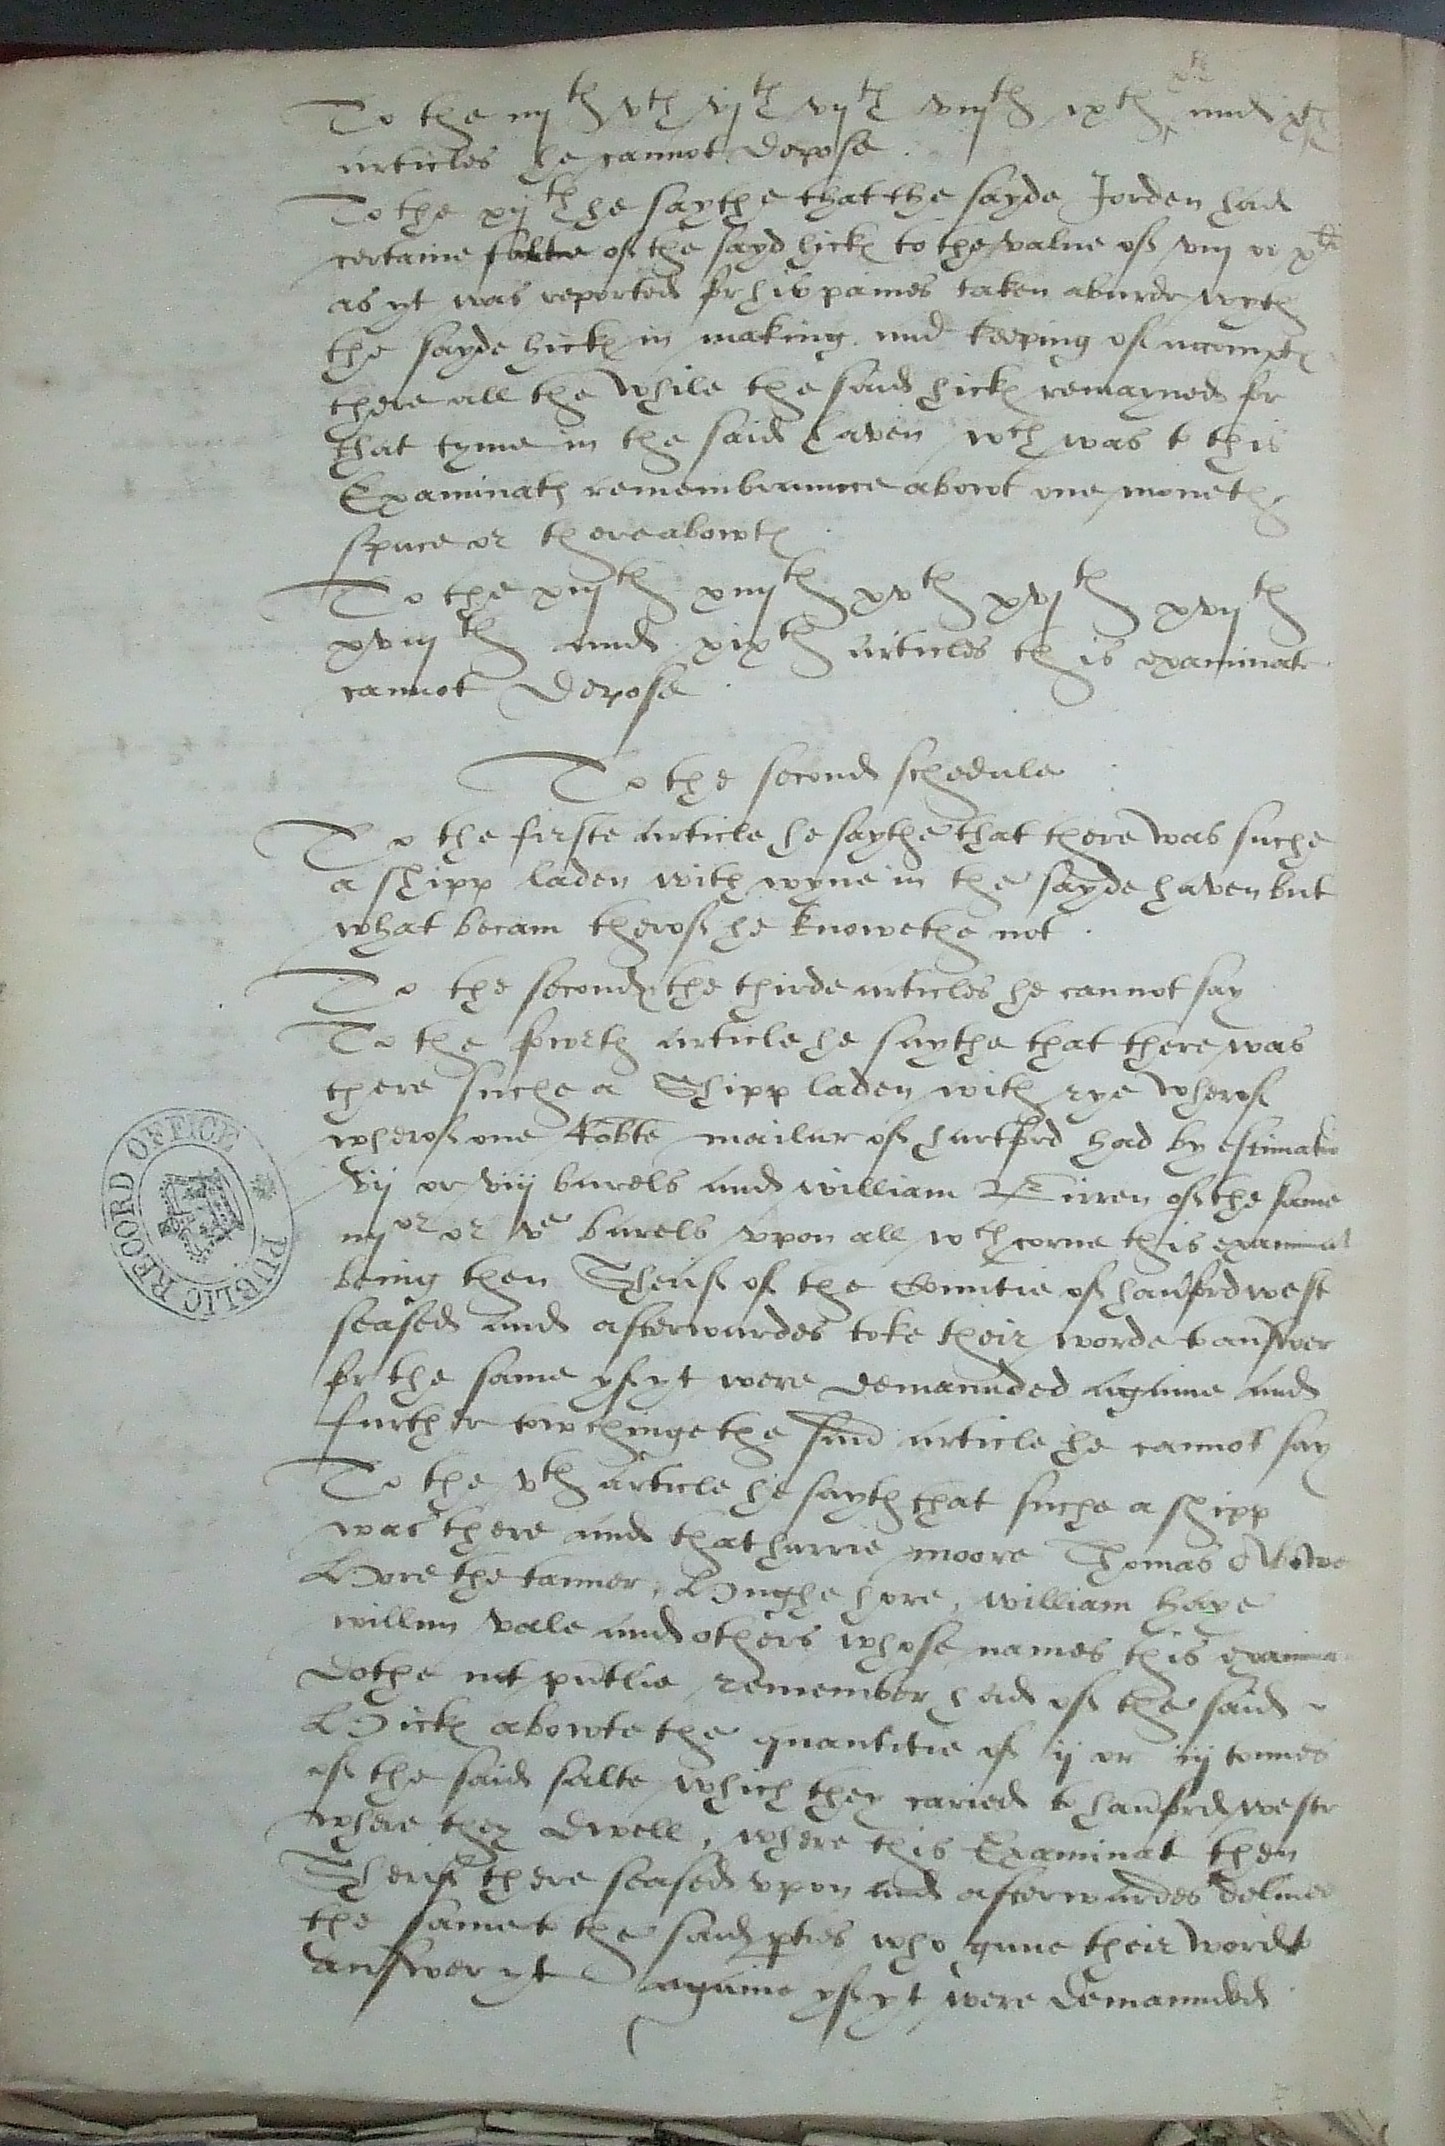 To the iiijth vth vjth vijth viijth ixth xth and xjth
articles he cannot depose
To the xijth he saythe that the sayde Jorden had
certaine salte of the sayd hick to the value of viij or xli
as yt was reported for his paines taken aburde wyth
the sayde hick in making and keeping of accompt
there all the while the said hick remayned for
that tyme in the said haven wch was to this
Examinath remembraunce abowt one moneth
space or thereabowt
To the xiijth xiiijth xvth xvjth xvijth
xviijth and xixth articles this examinate
cannot depose
To the second schedule
To the firste article he saythe that there was suche
a shipp laden with wyne in the sayde haven but
what becam therof he knowethe not
To the second the thirde articles he cannot say
To the fowrth article he saythe that there was
there suche a Shipp laden with rye wherof
wherof one Robte mailar of hartford had by estimatio
vij or viij barels and william of the same
iiijor or ve barels vpon all wch corne this examinat
being then Sherif of the Countie of haūfordwest
seased and afterwardes toke their worde to answer
for the same yf yt were demaunded againe and
further towchinge the said article he cannot say
To the vth article he sayth that suche a shipp
was there and that harrie moore Thomas
Hore the tanner, Hughe hore, william haye
willm vale and others whose names this examina
dothe not pntlie remember had of the said
Hick abowte the quantitie of ij or iij tonnes
of the said salte which they caried to haūford weste
where they dwell, where this Examinat then
Sherif there seased vpon and afterwardes deliued
the same to the said pties who gaue their word to
answer yt againe yf yt were demaunded
PUBLIC RECORD OFFICE